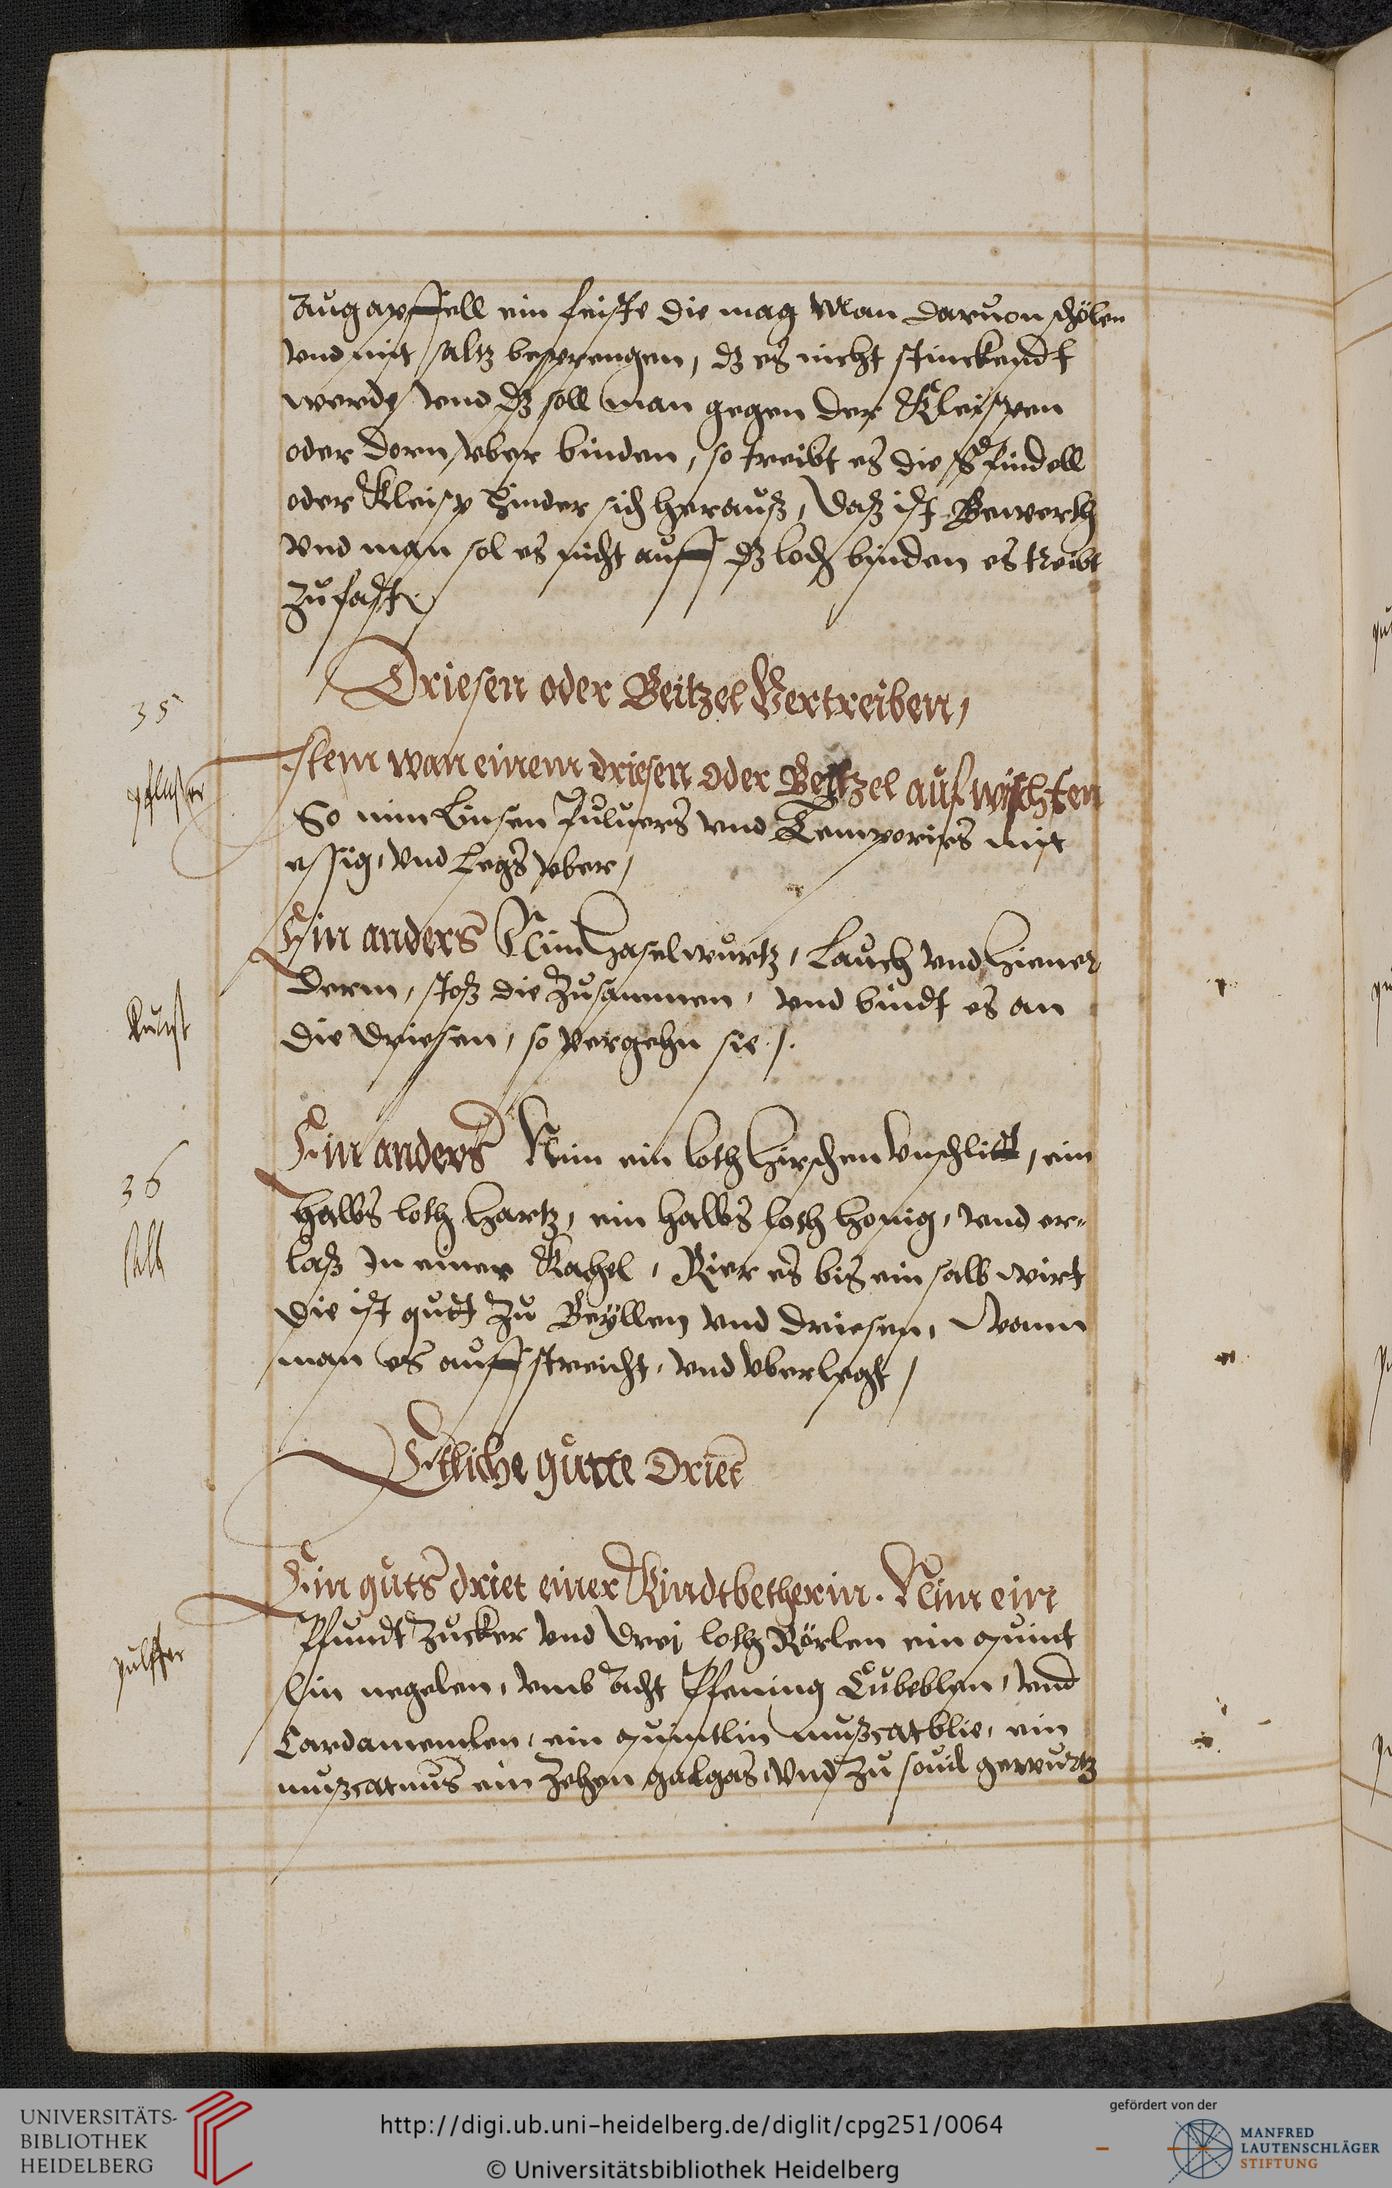 augapffell ein feiste die mag Man daruon schölen
vnd mit saltz besprengen, dz es nicht stinckendt
werde, vnd dz soll man gegen der Kleispen
oder dorn vber binden, so treibt es die Spindell
oder Kleisp hinder sich herauß, daß ist Bewerth
vnd man sol es nicht auff dz loch binden es treibt
zu fast.
Driesen oder Beitzel Vertreiben,
35
Item wan einem driesen oder Beitzel auf wischten
pflaster
So nim Linsen Puluers vnd Temporirs mit
essig, vnd Legs vber,
Ein anders Nim Haselwurtz, Lauch vnd hiener
derm, stoß die zusammen, vnd bindt es an
Kunst
die driesen, so vergehn sie.
Ein anders Nim ein loth Hirschen Vnschlitt, ein
36
halbs loth Hartz, ein halbs loth honig, vnd er-
salb
laß In einer Kachel, Rier es bis ein salb wirt
die ist gutt zu Beÿllen vnd driesen, Wann
man es auff streicht, vnd vberlegt,
Ettliche gutte Driet
Ein guts driet einer Kindtbetherin. Nim ein
Pfundt Zucker vnd drei loth Rörlen ein quint
pulffer
lin negelen, vmb acht Pfening Cubeblen, vnd
Cardamemlen, ein quintlin mußcatblie, ein
mußcatnus ein Zehen galgas, vnd zu souil gewurtz
UNIVERSITÄTS-
BIBLIOTHEK
HEIDELBERG
http://digi.ub.uni-heidelberg.de/diglit/cpg251/0064
© Universitätsbibliothek Heidelberg
gefördert von der
MANFRED
LAUTENSCHLÄGER
STIFTUNG